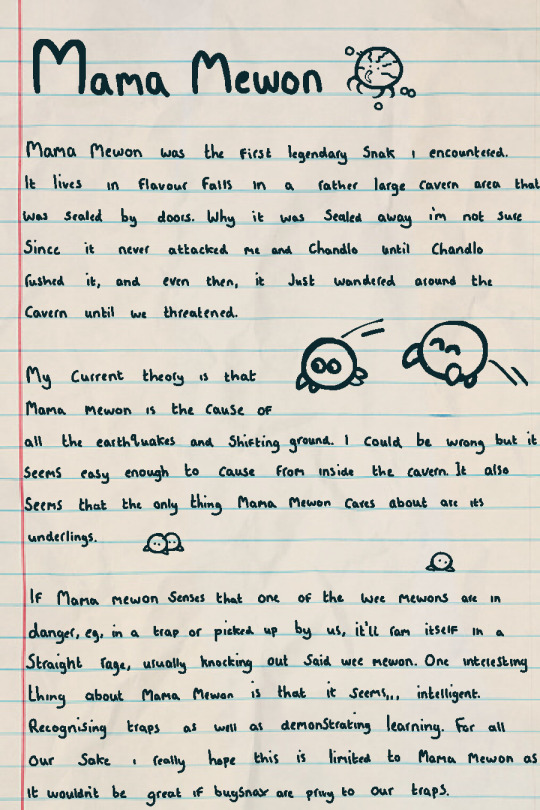 Mama Mewon
Mama Mewon was the first legendary Snak i encountered.
It lives in Flavour Falls in a rather large cavern area that
was sealed by doors. Why it was Sealed away i'm not sure
Since it never attacked me and Chandlo until Chandlo
rushed it, and even then, it Just wandered around the
Cavern until we threatened.
My Current theory is that
Mama Mewon is the cause of
all the earthquakes and Shifting ground. I could be wrong but it
Seems easy enough to cause from inside the cavern. It also
Seems that the only thing Mama Mewon Cares about are its
underlings.
If Mama mewon Senses that one of the wee mewons are in
danger, eg. in a trap or picked up by us, it'll ram itself in a
Straight rage, usually knocking out Said wee mewon. One interesting
thing about Mama Mewon is that it seems,,, intelligent.
Recognising traps as well as demonstrating learning. For all
our Sake i really hope this is limited to Mama Mewon as
it wouldn't be great if bugsnax are privy to our traps.